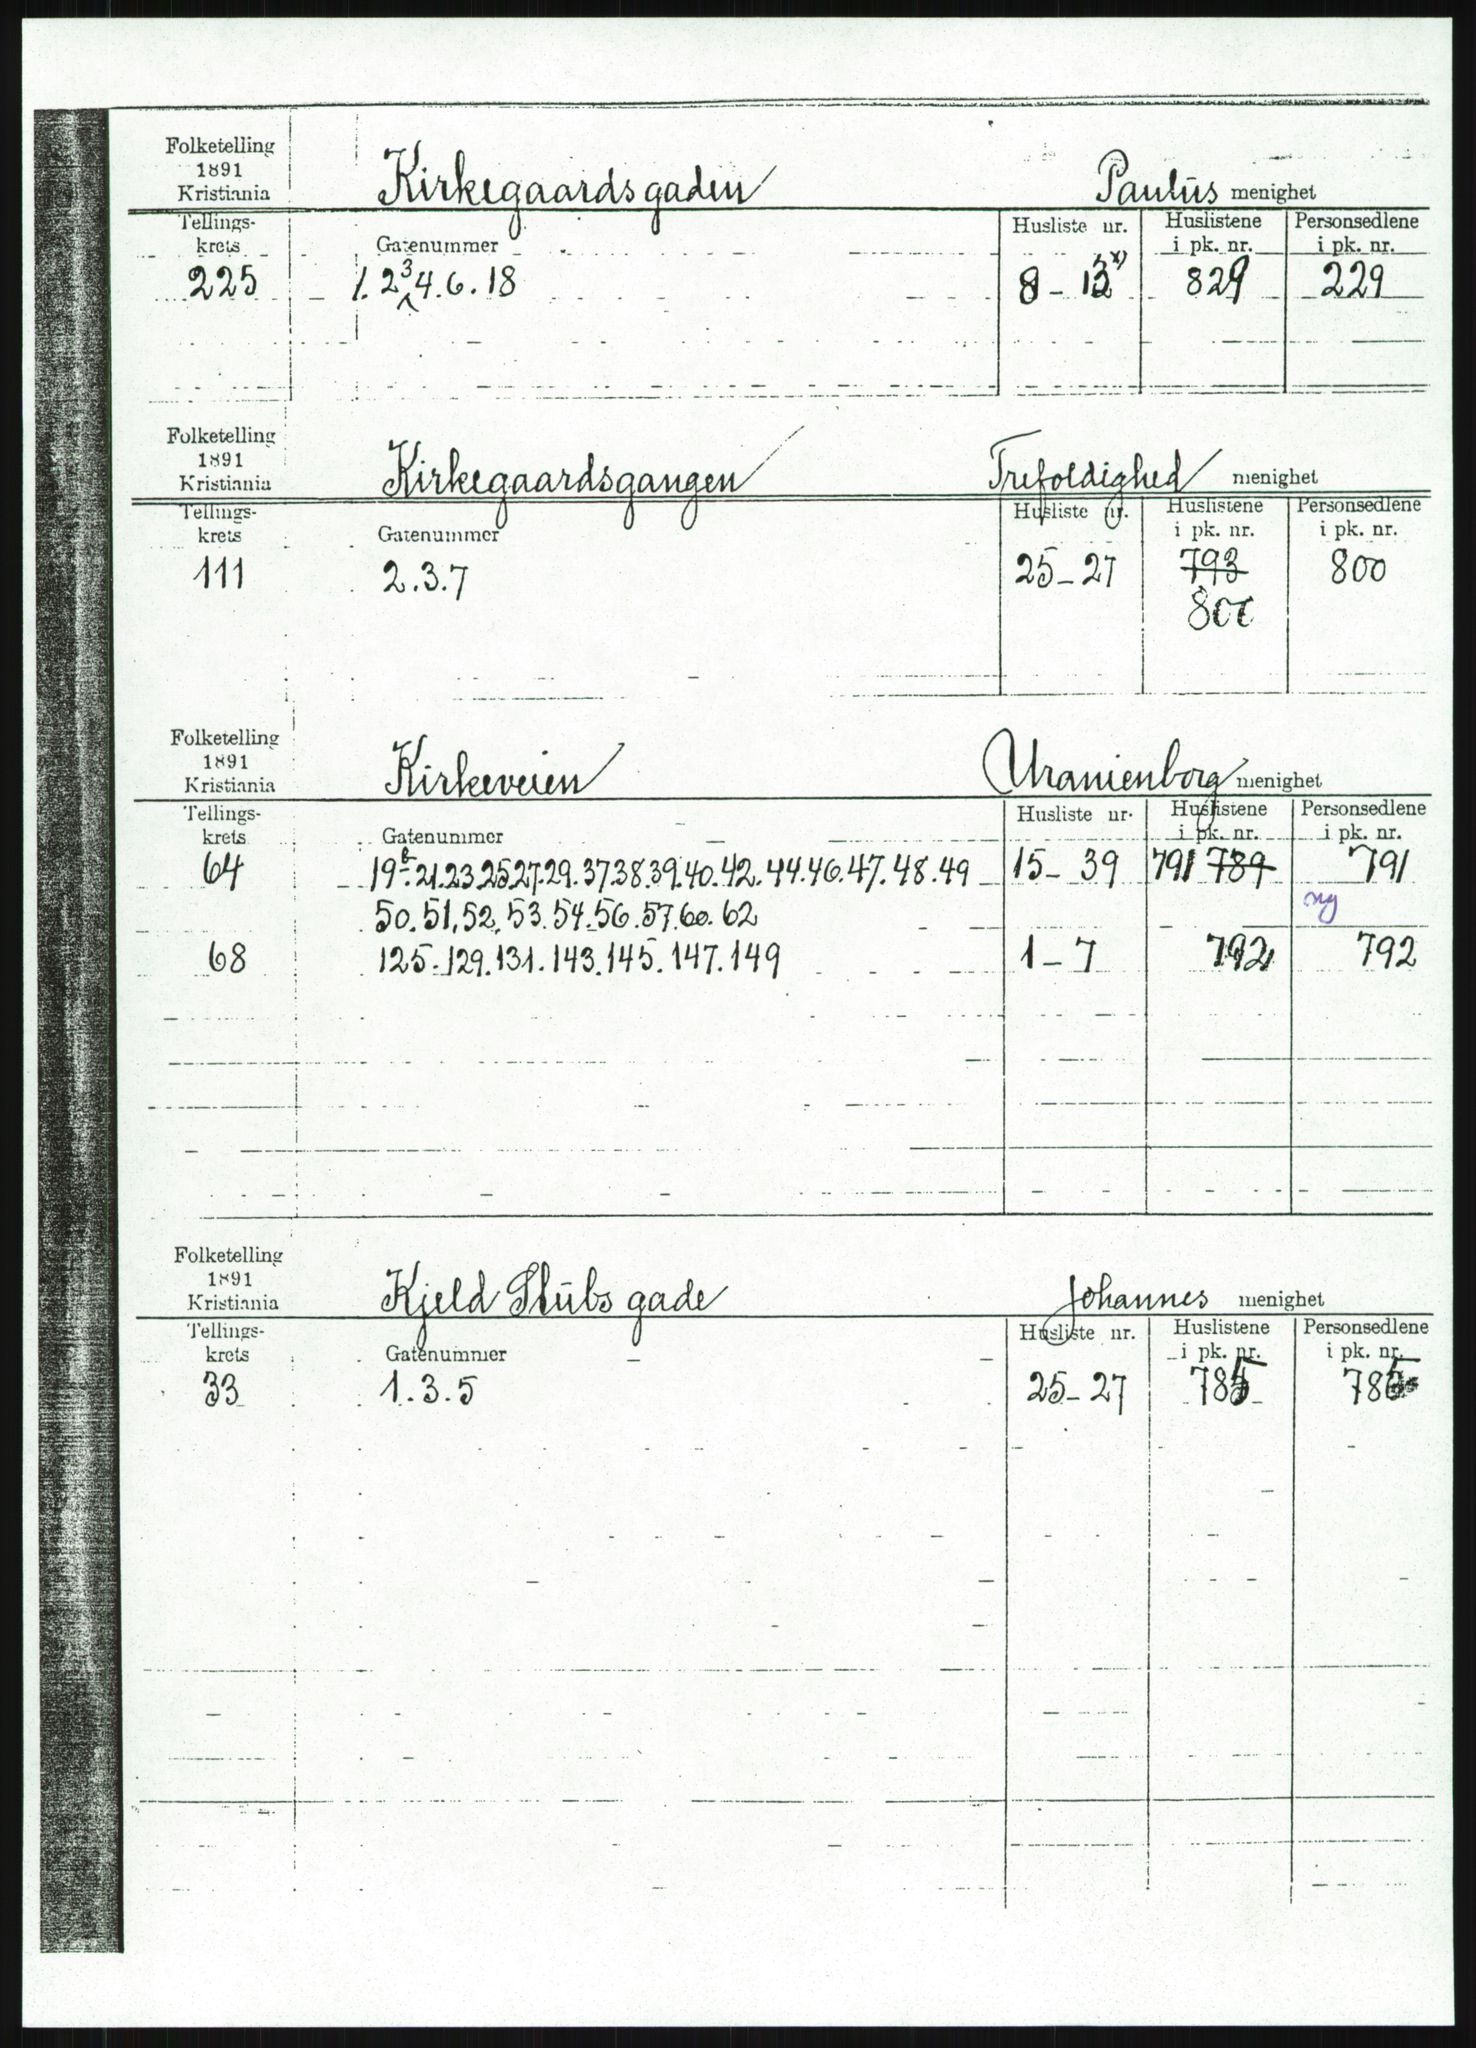 Folketelling
1891
Kristiania Kirkegaardsgaden Paulus menighet
Tellings-
krets Gatenummer Husliste nr. Huslistene i pk. nr. Personsedlene i pk. nr.
225 1. 2 3 4. 6. 18 8 - 13 x) 829 229
Folketelling
1891
Kristiania Kirkegaardsgangen Trefoldighed menighet
Tellings-
krets Gatenummer Husliste nr. Huslistene i pk. nr. Personsedlene i pk. nr.
111 2. 3. 7 25 - 27 793 800
800
Folketelling
1891
Kristiania Kirkeveien Uranienborg menighet
Tellings-
krets Gatenummer Husliste nr. Huslistene i pk. nr. Personsedlene i pk. nr.
64 19 b. 21. 23. 25. 27. 29. 37. 38. 39. 40. 42. 44. 46. 47. 48. 49 15 - 39 791 789 791
50. 51. 52. 53. 54. 56. 57. 60. 62 ny
68 125. 129. 131. 143. 145. 147. 149 1 - 7 792 792
Folketelling
1891
Kristiania Kjeld Stubs gade Johannes menighet
Tellings-
krets Gatenummer Husliste nr. Huslistene i pk. nr. Personsedlene i pk. nr.
33 1. 3. 5 25 - 27 785 785